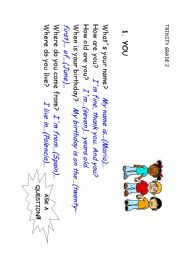 TRINITY GRADE 2
1. YOU
What's your name? My name is…(María)…
How are you? I'm fine, thank you. And you?
How old are you? I'm…(seven)… years old
When is your birthday? My birthday is on the…(twenty-
first)… of…(June)…
Where do you come from? I'm from…(Spain)…
Where do you live? I live in…(Palencia)…
ASK A
QUESTION!!